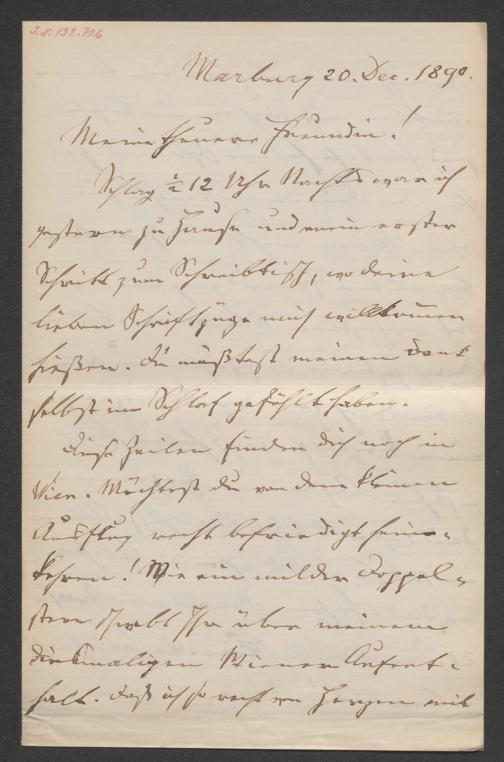 I.N. 132.726
Marburg 20. Dec. 1890.
Meine theuere Freundin!
Schlag ½ 12 Uhr Nachts war ich
gestern zu Hause und mein erster
Schritt zum Schreibtisch, wo deine
lieben Schriftzüge mich willkommen
hießen. Du mußtest meinen Dank
selbst im Schlaf gefühlt haben.
Diese Zeilen finden dich noch in
Wien. Möchtest du von dem kleinen
Ausflug recht befriedigt heim-
kehren! Wie ein milder Doppel-
stern schwebt Ihr über meinem
diesmaligen Wiener Aufent-
halt. Daß ich so recht von Herzen mit